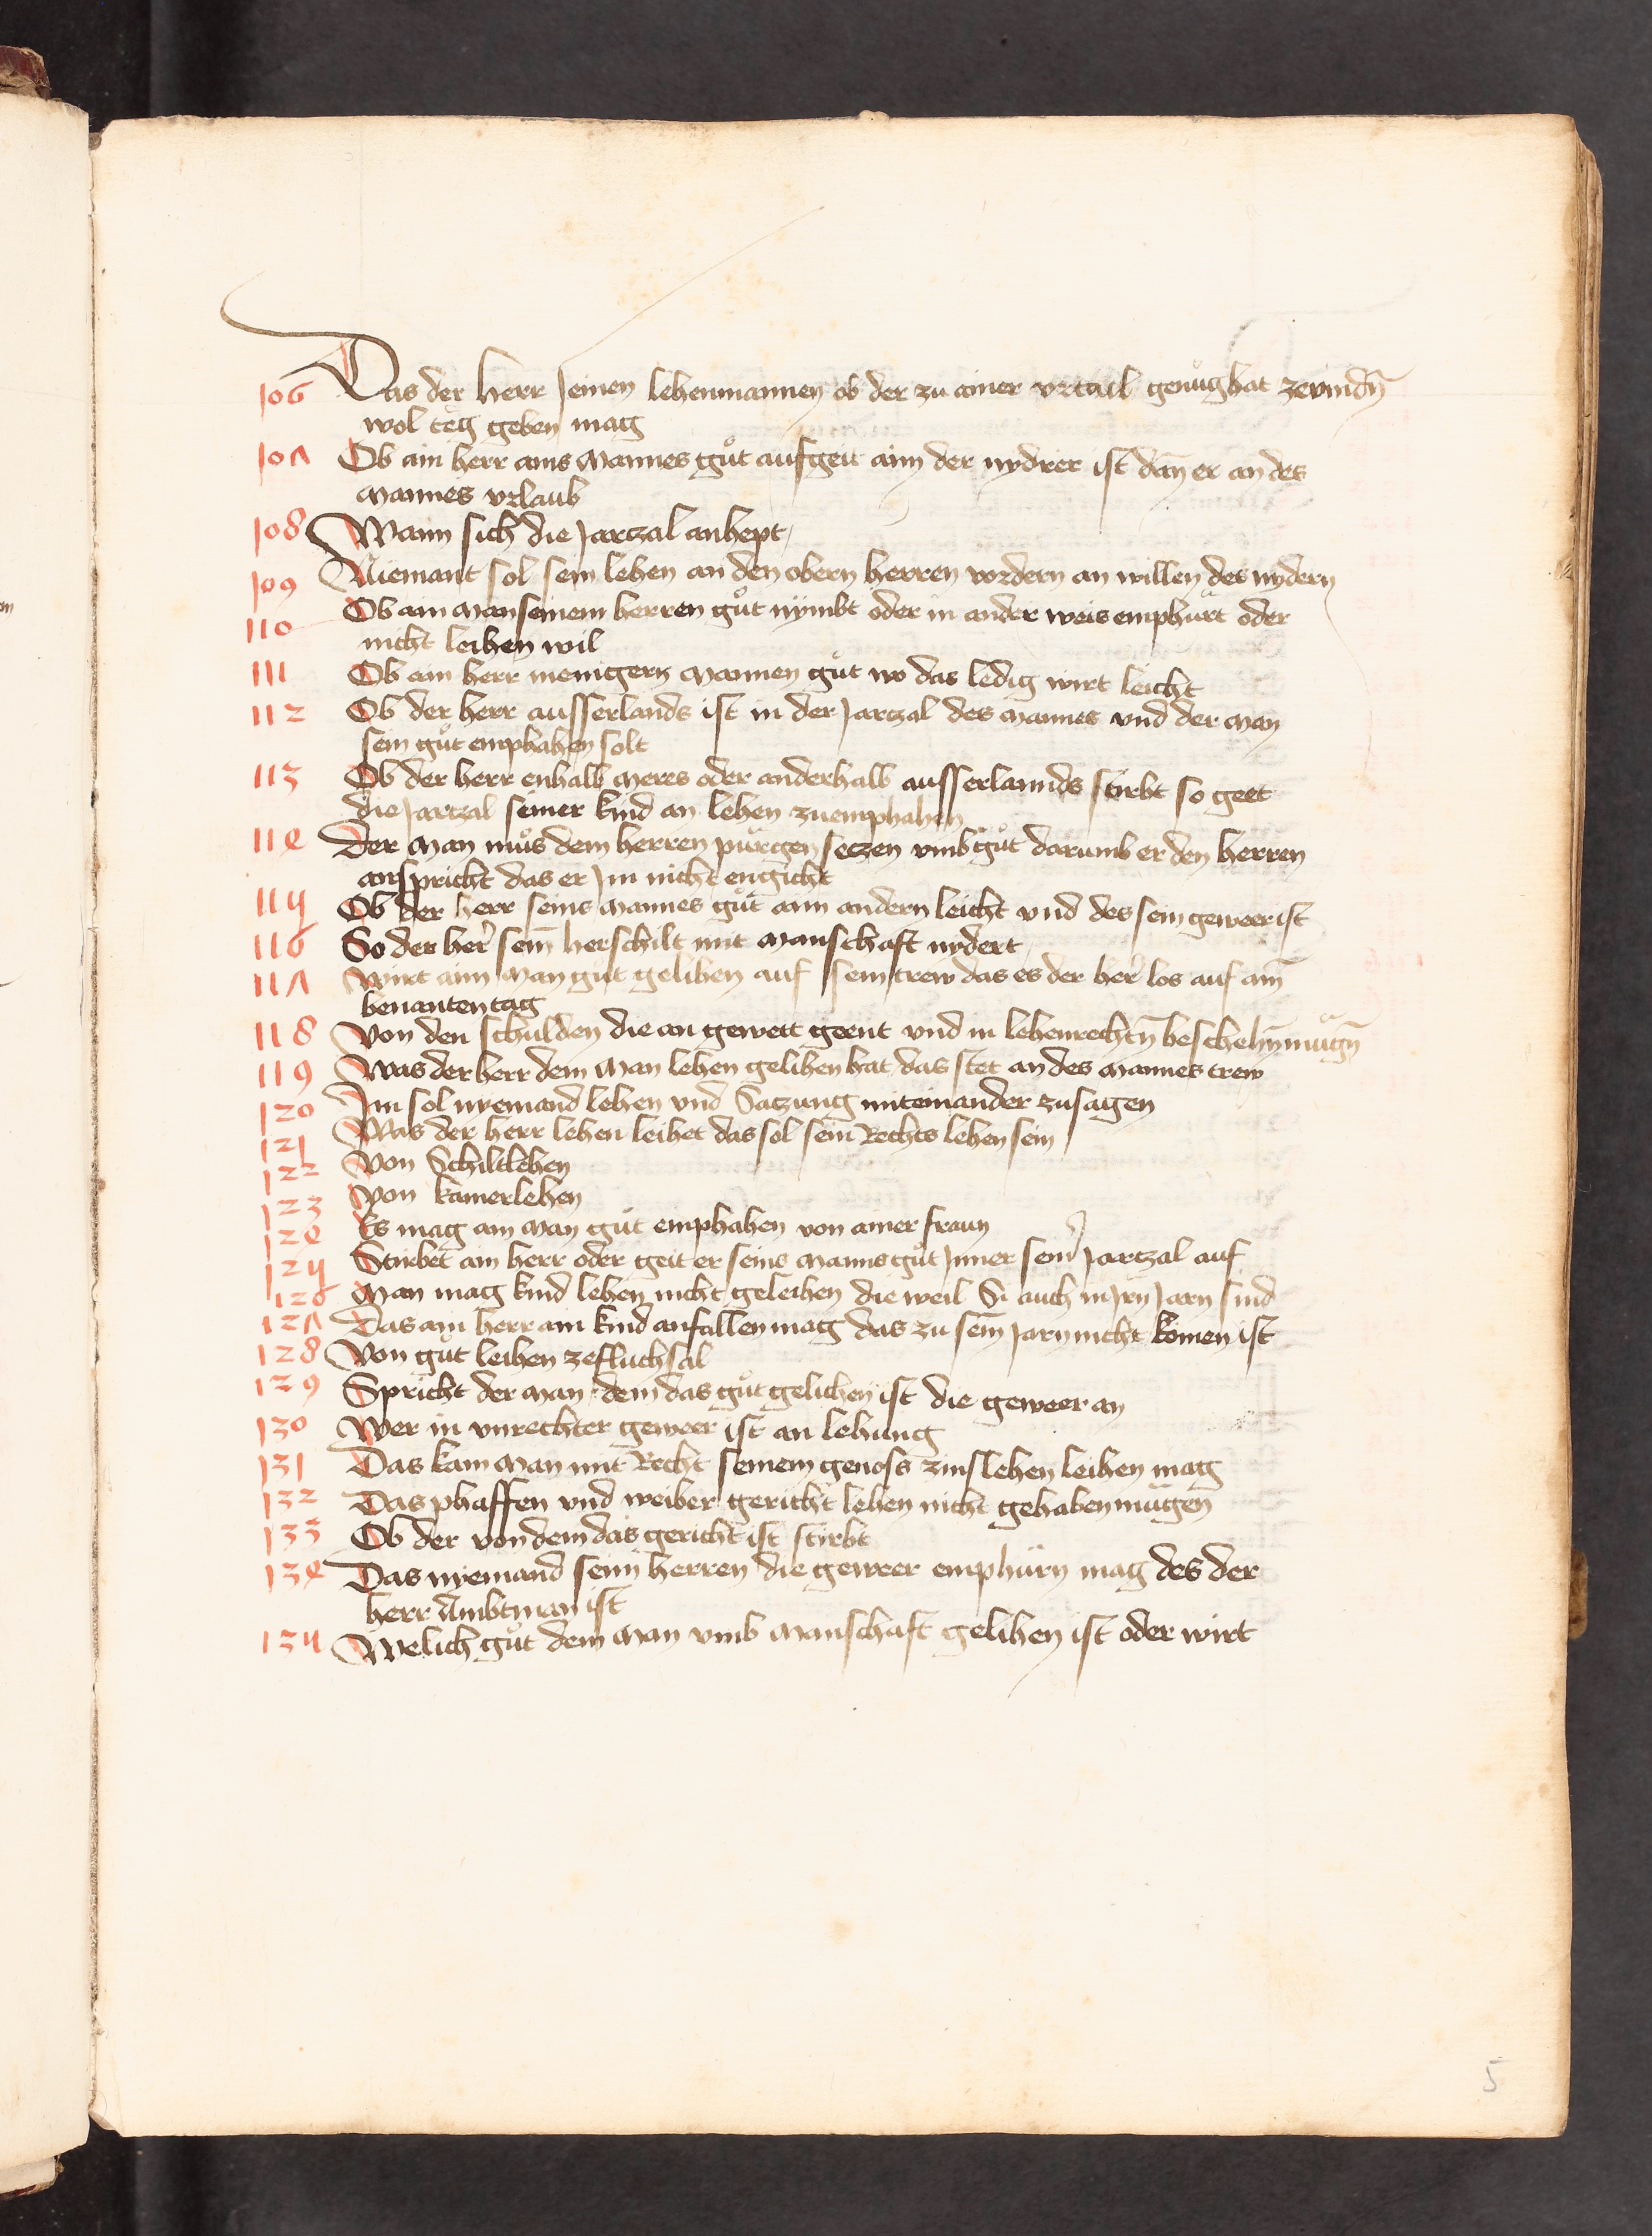 106 Das der herr seinen lehenmannen ob der zu ainer vrtail genůg hat zevindn̄
wol teg geben mag
107 Ob ain herr ains mannes gůt aufgeit aim der nydrer ist dan̄ er an des
mannes vrlaub
108 Wann sich die Jarczal anhept
109 Niemant sol sein lehen an den obern herren vordern an willen des nydern
110 Ob ain man seinem herren gůt nymbt oder in ander weis emphürt oder
nicht leihen wil
111 Ob ain herr menigern mannen gůt wo das ledig wirt leicht
112 Ob der herr ausserlands ist in der Jarczal des mannes vnd der man
sein gůt emphahen solt
113 Ob der herr enhalb meres oder anderhalb ausserlannds stirbt so geet
die Jarczal seiner kind an lehen zuemphahen
114 Der man můs dem herren pürgen seczen vmb gůt darumb er den herren
anspricht das er Im nicht engicht
115 Ob der herr seins mannes gůt aim andern leicht vnd des sein geweer ist
116 So der her̄ sein̄ herschilt mit manschaft nydert
117 Wirt aim man gut gelihen auf sein trew das es der her̄ los auf ain̄
benanten tag
118 Von den schulden die an gewett geent vnd in lehenrechtn̄ beschehn̄ mügn̄
119 Was der herr dem man lehen gelihen hat das stet an des mannes trew
120 Im sol nyemand lehen vnd Saczung miteinander zusagen
121 Was der herr lehen leihet das sol sein Rechts lehen sein
122 Von Schiltlehen
123 Von kamerlehen
124 Es mag ain man gůt emphahen von ainer frawn
125 Stirbet ain herr oder geit er seins manns gůt Inner sein̄ Jarczal auf
126 Man mag kind lehen nicht geleihen die weil Si auch in Irn Jarn sind
127 Das ain herr ain kind anfallen mag das zu sein̄ Jarn nicht komen ist
128 Von gůt leihen zefluchsal
129 Spricht der man dem das gůt gelichen ist die geweer an
130 Wer in vnrechter geweer ist an lehung
131 Das kain man mit Recht seinem genoss zinslehen leihen mag
132 Das phaffen vnd weiber gericht lehen nicht gehaben mügen
133 Ob der von dem das gericht ist stirbt
134 Das nyemand seim herren die geweer emphürn mag des der
herr Ambtman ist
135 Welich gůt dem man vmb manschaft gelihen ist oder wirt
5